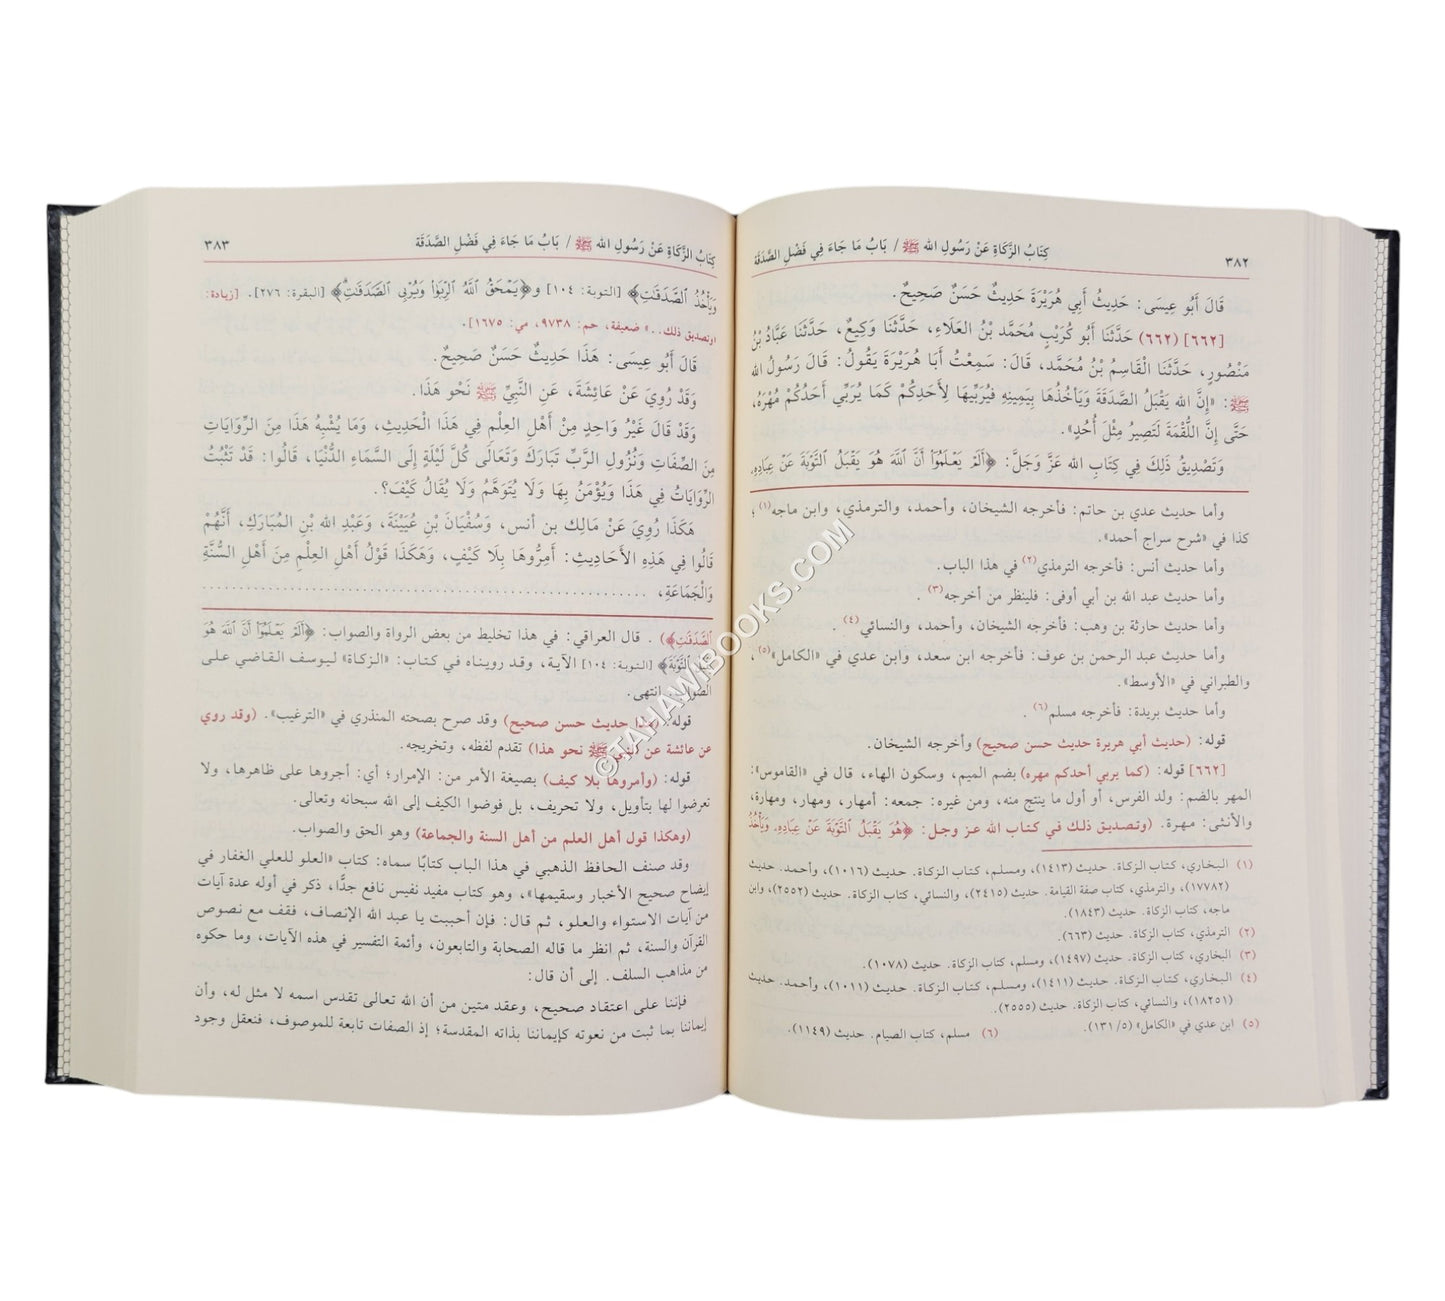 ٣٨٢
كِتَابُ الزَّكَاةِ عَنْ رَسُولِ الله ﷺ / بَابُ مَا جَاءَ فِي فَضْلِ الصَّدَقَة
قَالَ أَبُو عِيسَى: حَدِيثُ أَبِي هُرَيْرَةَ حَدِيثٌ حَسَنٌ صَحِيحٌ.
[٦٦٢] (٦٦٢) حَدَّثَنَا أَبُو كُرَيْبٍ مُحَمَّد بْنُ العَلَاءِ، حَدَّثَنَا وَكِيعٌ، حَدَّثَنَا عَبَّادُ بْنُ
مَنْصُورٍ، حَدَّثَنَا الْقَاسِمُ بْنُ مُحَمَّد، قَالَ: سَمِعْتُ أَبَا هُرَيْرَةَ يَقُولُ: قَالَ رَسُولُ الله
ﷺ: «إِنَّ الله يَقْبَلُ الصَّدَقَةَ وَيَأْخُذُهَا بِيَمِينِهِ فَيُرَبِّيهَا لِأَحَدِكُمْ كَمَا يُرَبِّي أَحَدُكُمْ مُهْرَهُ،
حَتَّى إِنَّ اللُّقْمَةَ لَتَصِيرُ مِثْلَ أُحُدٍ».
وَتَصْدِيقُ ذَلِكَ فِي كِتَابِ الله عَزَّ وَجَلَّ: ﴿أَلَمْ يَعْلَمُوٓا۟ أَنَّ ٱللَّهَ هُوَ يَقْبَلُ ٱلتَّوْبَةَ عَنْ عِبَادِهِۦ
وأما حديث عدي بن حاتم: فأخرجه الشيخان، وأحمد، والترمذي، وابن ماجه(١)؛
كذا في «شرح سراج أحمد».
وأما حديث أنس: فأخرجه الترمذي(٢) في هذا الباب.
وأما حديث عبد الله بن أبي أوفى: فلينظر من أخرجه(٣).
وأما حديث حارثة بن وهب: فأخرجه الشيخان، وأحمد، والنسائي(٤).
وأما حديث عبد الرحمن بن عوف: فأخرجه ابن سعد، وابن عدي في «الكامل»(٥)،
والطبراني في «الأوسط».
وأما حديث بريدة: فأخرجه مسلم(٦).
قوله: (حديث أبي هريرة حديث حسن صحيح) وأخرجه الشيخان.
[٦٦٢] قوله: (كما يربي أحدكم مهره) بضم الميم، وسكون الهاء، قال في «القاموس»:
المهر بالضم: ولد الفرس، أو أول ما ينتج منه، ومن غيره: جمعه: أمهار، ومهار، ومهارة،
والأنثى: مهرة. (وتصديق ذلك في كتاب الله عز وجل: ﴿هُوَ يَقْبَلُ ٱلتَّوْبَةَ عَنْ عِبَادِهِۦ وَيَأْخُذُ
(١) البخاري، كتاب الزكاة. حديث (١٤١٣)، ومسلم، كتاب الزكاة. حديث (١٠١٦)، وأحمد. حديث
(١٧٧٨٢)، والترمذي، كتاب صفة القيامة. حديث (٢٤١٥)، والنسائي، كتاب الزكاة. حديث (٢٥٥٢)، وابن
ماجه، كتاب الزكاة. حديث (١٨٤٣).
(٢) الترمذي، كتاب الزكاة. حديث (٦٦٣).
(٣) البخاري، كتاب الزكاة. حديث (١٤٩٧)، ومسلم، كتاب الزكاة. حديث (١٠٧٨).
(٤) البخاري، كتاب الزكاة. حديث (١٤١١)، ومسلم، كتاب الزكاة. حديث (١٠١١)، وأحمد. حديث
(١٨٢٥١)، والنسائي، كتاب الزكاة. حديث (٢٥٥٥).
(٥) ابن عدي في «الكامل» (٥/ ١٣١). (٦) مسلم، كتاب الصيام. حديث (١١٤٩).
كِتَابُ الزَّكَاةِ عَنْ رَسُولِ الله ﷺ / بَابُ مَا جَاءَ فِي فَضْلِ الصَّدَقَة
٣٨٣
وَيَأْخُذُ ٱلصَّدَقَـٰتِ﴾ [التوبة: ١٠٤] و﴿يَمْحَقُ ٱللَّهُ ٱلرِّبَوٰا۟ وَيُرْبِى ٱلصَّدَقَـٰتِ﴾ [البقرة: ٢٧٦]. [زيادة:
«وتصديق ذلك..» ضعيفة، حم: ٩٧٣٨، مي: ١٦٧٥].
قَالَ أَبُو عِيسَى: هَذَا حَدِيثٌ حَسَنٌ صَحِيحٌ.
وَقَدْ رُوِيَ عَنْ عَائِشَةَ، عَنِ النَّبِيِّ ﷺ نَحْو هَذَا.
وَقَدْ قَالَ غَيْرُ وَاحِدٍ مِنْ أَهْلِ العِلْمِ فِي هَذَا الْحَدِيثِ، وَمَا يُشْبِهُ هَذَا مِنَ الرِّوَايَاتِ
مِنَ الصِّفَاتِ وَنُزُولِ الرَّبِّ تَبَارَكَ وَتَعَالَى كُلَّ لَيْلَةٍ إِلَى السَّمَاءِ الدُّنْيَا، قَالُوا: قَدْ تَثْبُتُ
الرِّوَايَاتُ فِي هَذَا وَيُؤْمَنُ بِهَا وَلَا يُتَوَهَّمُ وَلَا يُقَالُ كَيْفَ؟.
هَكَذَا رُوِيَ عَنْ مَالِك بن أنس، وَسُفْيَانَ بْنِ عُيَيْنَةَ، وَعَبْدِ الله بْنِ المُبَارَكِ، أَنَّهُمْ
قَالُوا فِي هَذِهِ الأَحَادِيثِ: أَمِرُّوهَا بِلَا كَيْفٍ، وَهَكَذَا قَوْلُ أَهْلِ العِلْمِ مِنَ أَهْلِ السُّنَّةِ
وَالْجَمَاعَةِ، ........................................
ٱلصَّدَقَـٰتِ﴾) . قال العراقي: في هذا تخليط من بعض الرواة والصواب: ﴿أَلَمْ يَعْلَمُوٓا۟ أَنَّ ٱللَّهَ هُوَ
يَقْبَلُ ٱلتَّوْبَةَ﴾ [التوبة: ١٠٤] الآية، وقد رويناه في كتاب: «الزكاة» ليوسف القاضي على
الصواب. انتهى.
قوله: (هذا حديث حسن صحيح) وقد صرح بصحته المنذري في «الترغيب». (وقد روي
عن عائشة عن النبي ﷺ نحو هذا) تقدم لفظه، وتخريجه.
قوله: (وأمروها بلا كيف) بصيغة الأمر من: الإمرار؛ أي: أجروها على ظاهرها، ولا
تعرضوا لها بتأويل، ولا تحريف، بل فوضوا الكيف إلى الله سبحانه وتعالى.
(وهكذا قول أهل العلم من أهل السنة والجماعة) وهو الحق والصواب.
وقد صنف الحافظ الذهبي في هذا الباب كتابًا سماه: كتاب «العلو للعلي الغفار في
إيضاح صحيح الأخبار وسقيمها»، وهو كتاب مفيد نفيس نافع جدًّا، ذكر في أوله عدة آيات
من آيات الاستواء والعلو، ثم قال: فإن أحببت يا عبد الله الإنصاف، فقف مع نصوص
القرآن والسنة، ثم انظر ما قاله الصحابة والتابعون، وأئمة التفسير في هذه الآيات، وما حكوه
من مذاهب السلف. إلى أن قال:
فإننا على اعتقاد صحيح، وعقد متين من أن الله تعالى تقدس اسمه لا مثل له، وأن
إيماننا بما ثبت من نعوته كإيماننا بذاته المقدسة؛ إذ الصفات تابعة للموصوف، فنعقل وجود
©TAHAWIBOOKS.COM